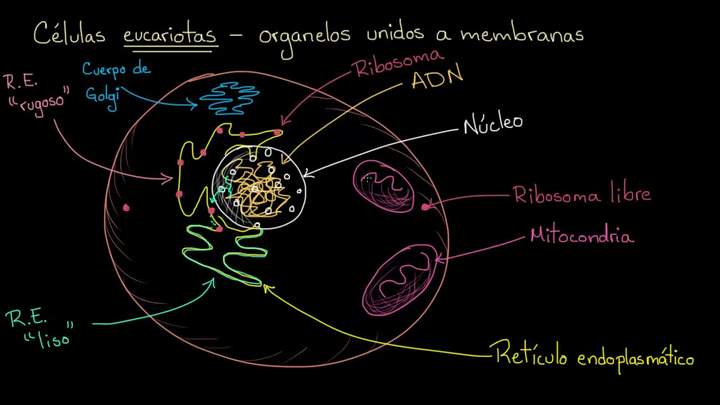 Células eucariotas – organelos unidos a membranas
R.E.
"rugoso"
Cuerpo de
Golgi
Ribosoma
ADN
Núcleo
Ribosoma libre
Mitocondria
R.E.
"liso"
Retículo endoplasmático